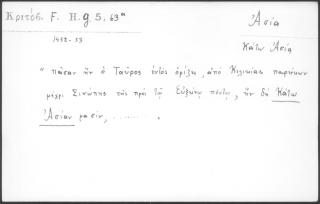 Κριτόβ. F. H. g 5. 63ᵃ
Ἀσία
1452-53
Κάτω Ἀσία
" πᾶσαν ἣν ὁ Ταῦρος ἐντὸς ὁρίζει, ἀπὸ Κιλικίας παρήκων
μέχρι Σινώπης τῆς πρὸς τῷ Εὐξείνῳ πόντῳ, ἣν δὴ Κάτω
Ἀσίαν φασιν, ........